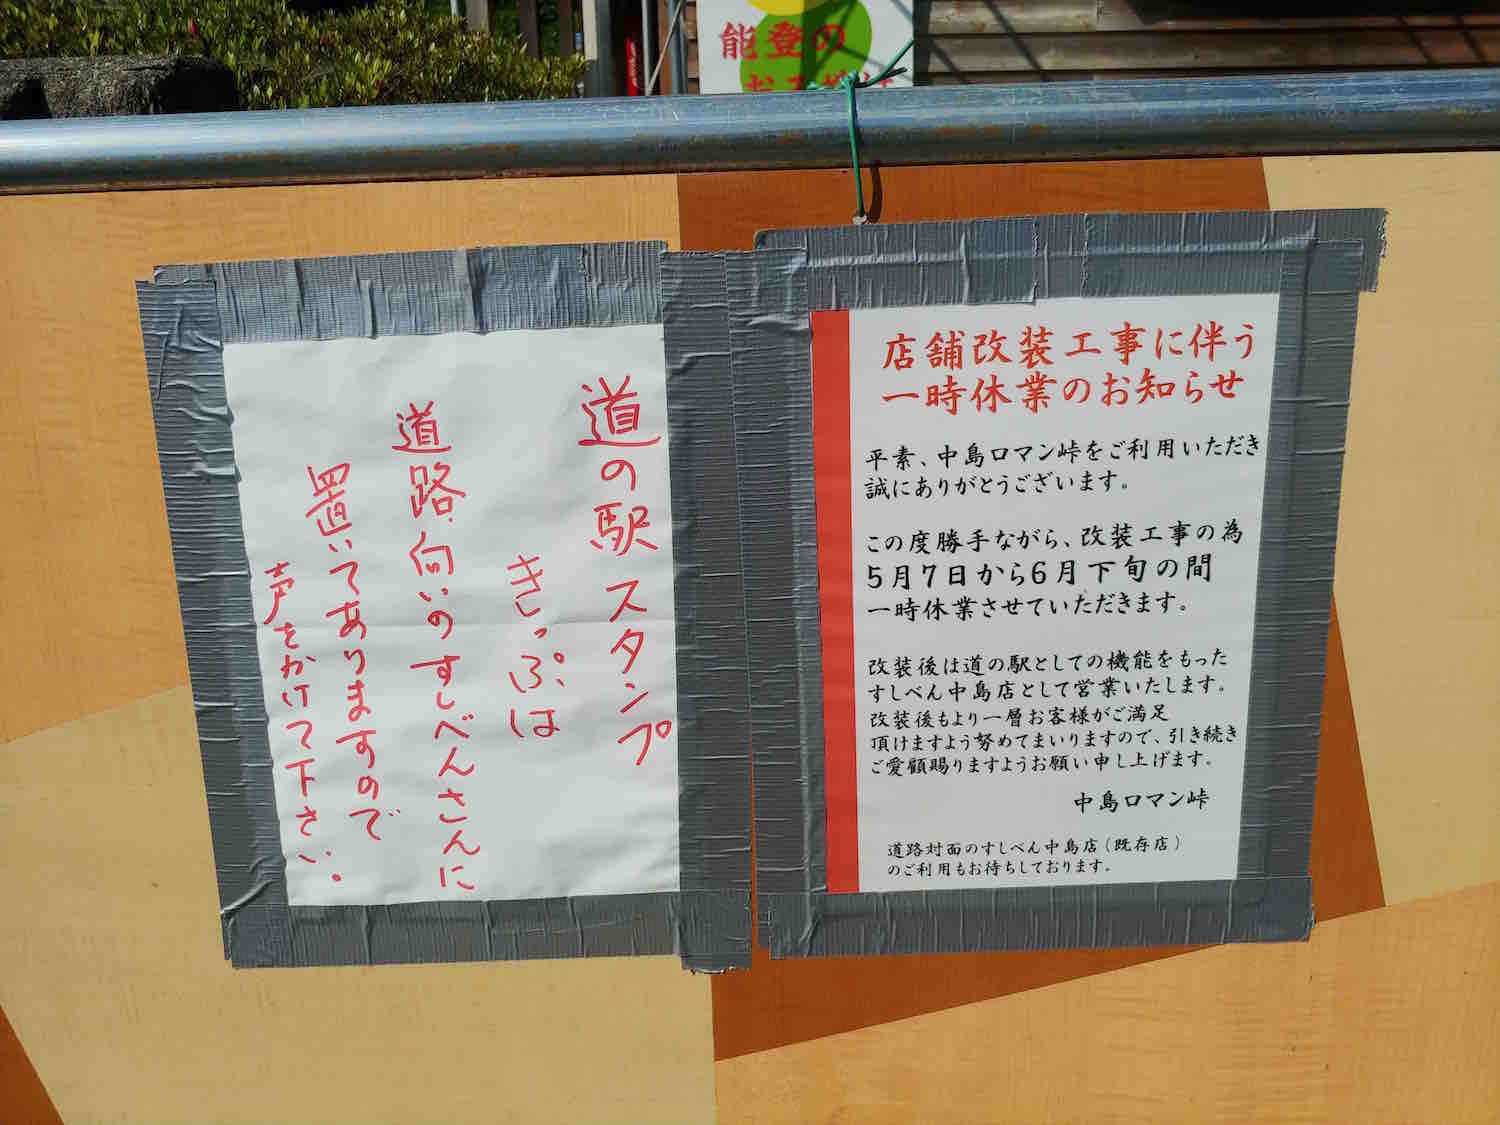 能登の
道の駅スタンプ
きっぷは
道路向いのすしべんさんに
置いてありますので
声をかけて下さい。
店舗改装工事に伴う
一時休業のお知らせ
平素、中島ロマン峠をご利用いただき
誠にありがとうございます。
この度勝手ながら、改装工事の為
5月7日から6月下旬の間
一時休業させていただきます。
改装後は道の駅としての機能をもった
すしべん中島店として営業いたします。
改装後もより一層お客様がご満足
頂けますよう努めてまいりますので、引き続き
ご愛顧賜りますようお願い申し上げます。
中島ロマン峠
道路対面のすしべん中島店(既存店)
のご利用もお待ちしております。